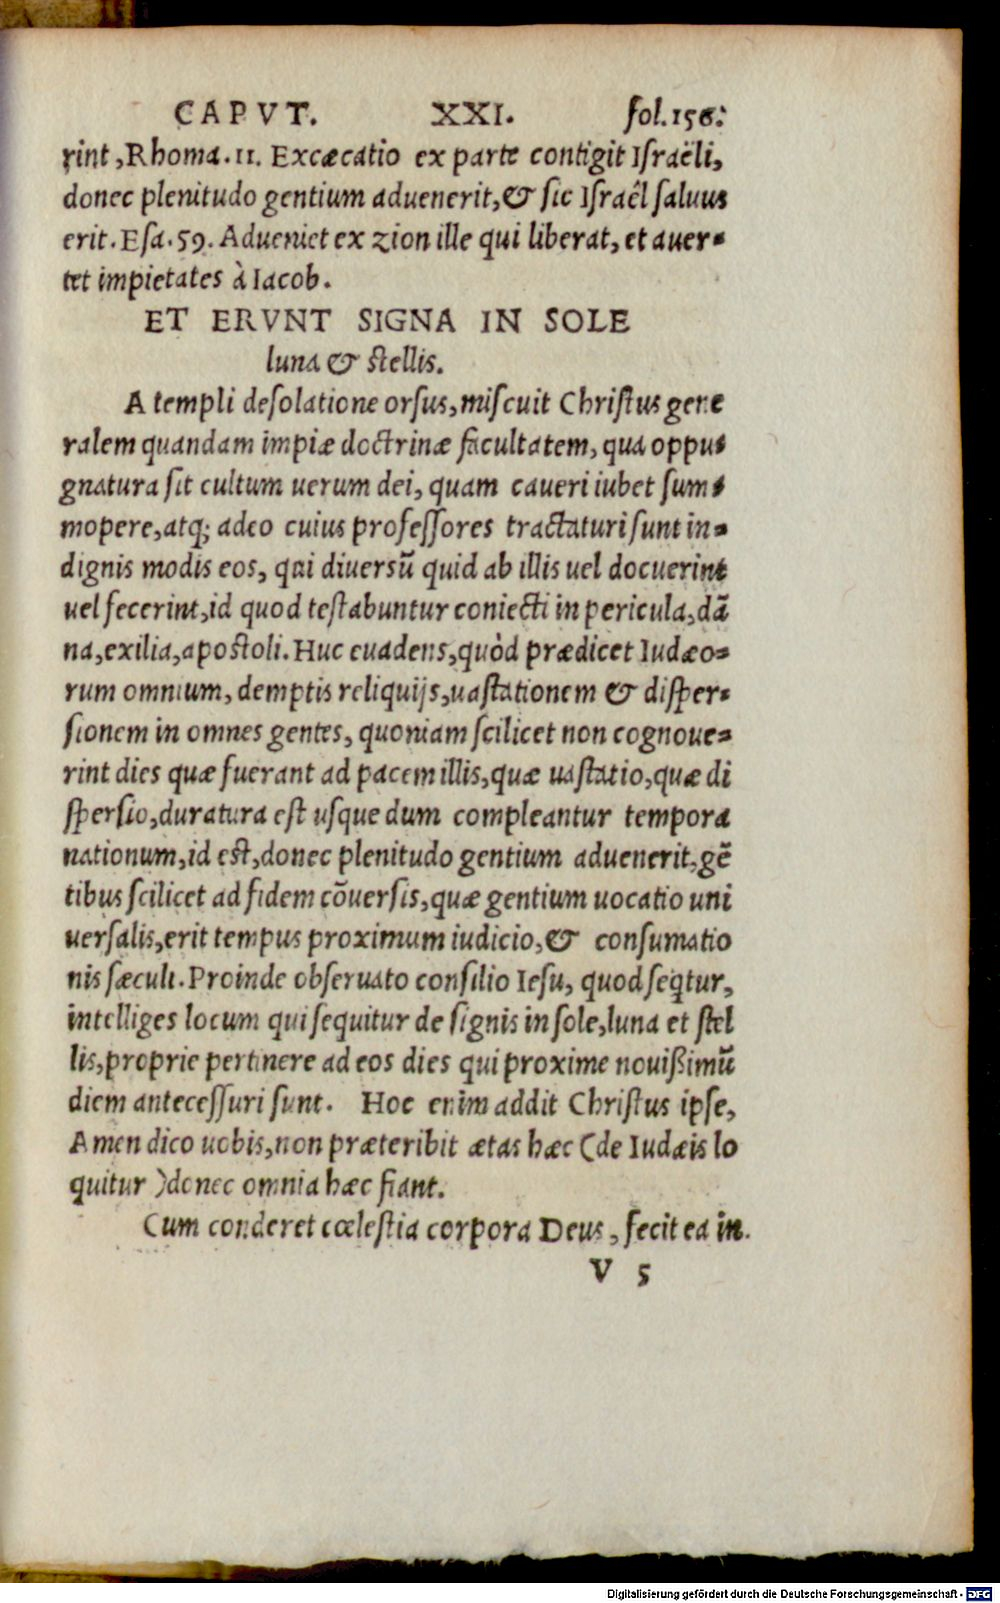 CAPVT. XXI. fol.156.
rint, Rhoma.11. Excæcatio ex parte contigit Iſraëli,
donec plenitudo gentium aduenerit, & ſic Iſraël ſaluus
erit. Eſa.59. Adueniet ex zion ille qui liberat, et auer-
tet impietates à Iacob.
ET ERVNT SIGNA IN SOLE
luna & ſtellis.
A templi deſolatione orſus, miſcuit Chriſtus gene
ralem quandam impiæ doctrinæ facultatem, qua oppu-
gnatura ſit cultum uerum dei, quam caueri iubet ſum-
mopere, atq; adeo cuius profeſſores tractaturi ſunt in-
dignis modis eos, qui diuersũ quid ab illis uel docuerint
uel fecerint, id quod teſtabuntur coniecti in pericula, dã
na, exilia, apoſtoli. Huc euadens, quòd prædicet Iudæo-
rum omnium, demptis reliquijs, uaſtationem & diſper-
ſionem in omnes gentes, quoniam ſcilicet non cognoue-
rint dies quæ fuerant ad pacem illis, quæ uaſtatio, quæ di
ſperſio, duratura eſt uſque dum compleantur tempora
nationum, id eſt, donec plenitudo gentium aduenerit, gẽ
tibus ſcilicet ad fidem cõuerſis, quæ gentium uocatio uni
uerſalis, erit tempus proximum iudicio, & conſumatio
nis ſæculi. Proinde obſeruato conſilio Ieſu, quod ſeqtur,
intelliges locum qui ſequitur de ſignis in ſole, luna et ſtel
lis, proprie pertinere ad eos dies qui proxime nouißimũ
diem anteceſſuri ſunt. Hoc enim addit Chriſtus ipſe,
Amen dico uobis, non præteribit ætas hæc (de Iudæis lo
quitur) donec omnia hæc fiant.
Cum conderet cœleſtia corpora Deus, fecit ea in.
V 5
Digitalisierung gefördert durch die Deutsche Forschungsgemeinschaft - DFG